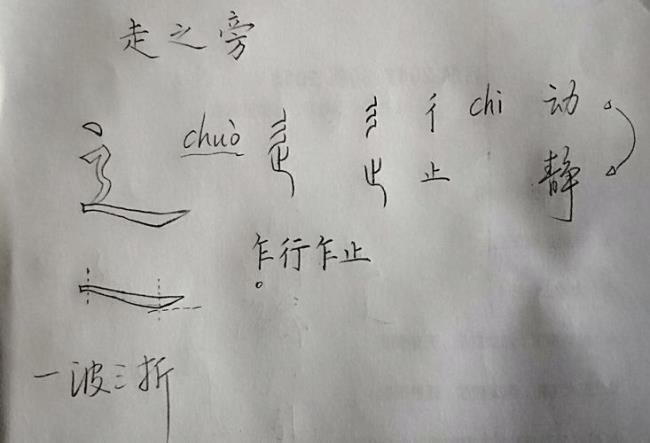 走之旁
辶 chuò 辵 彡 彳 chi 动
止 止 静
乍行乍止
一波三折